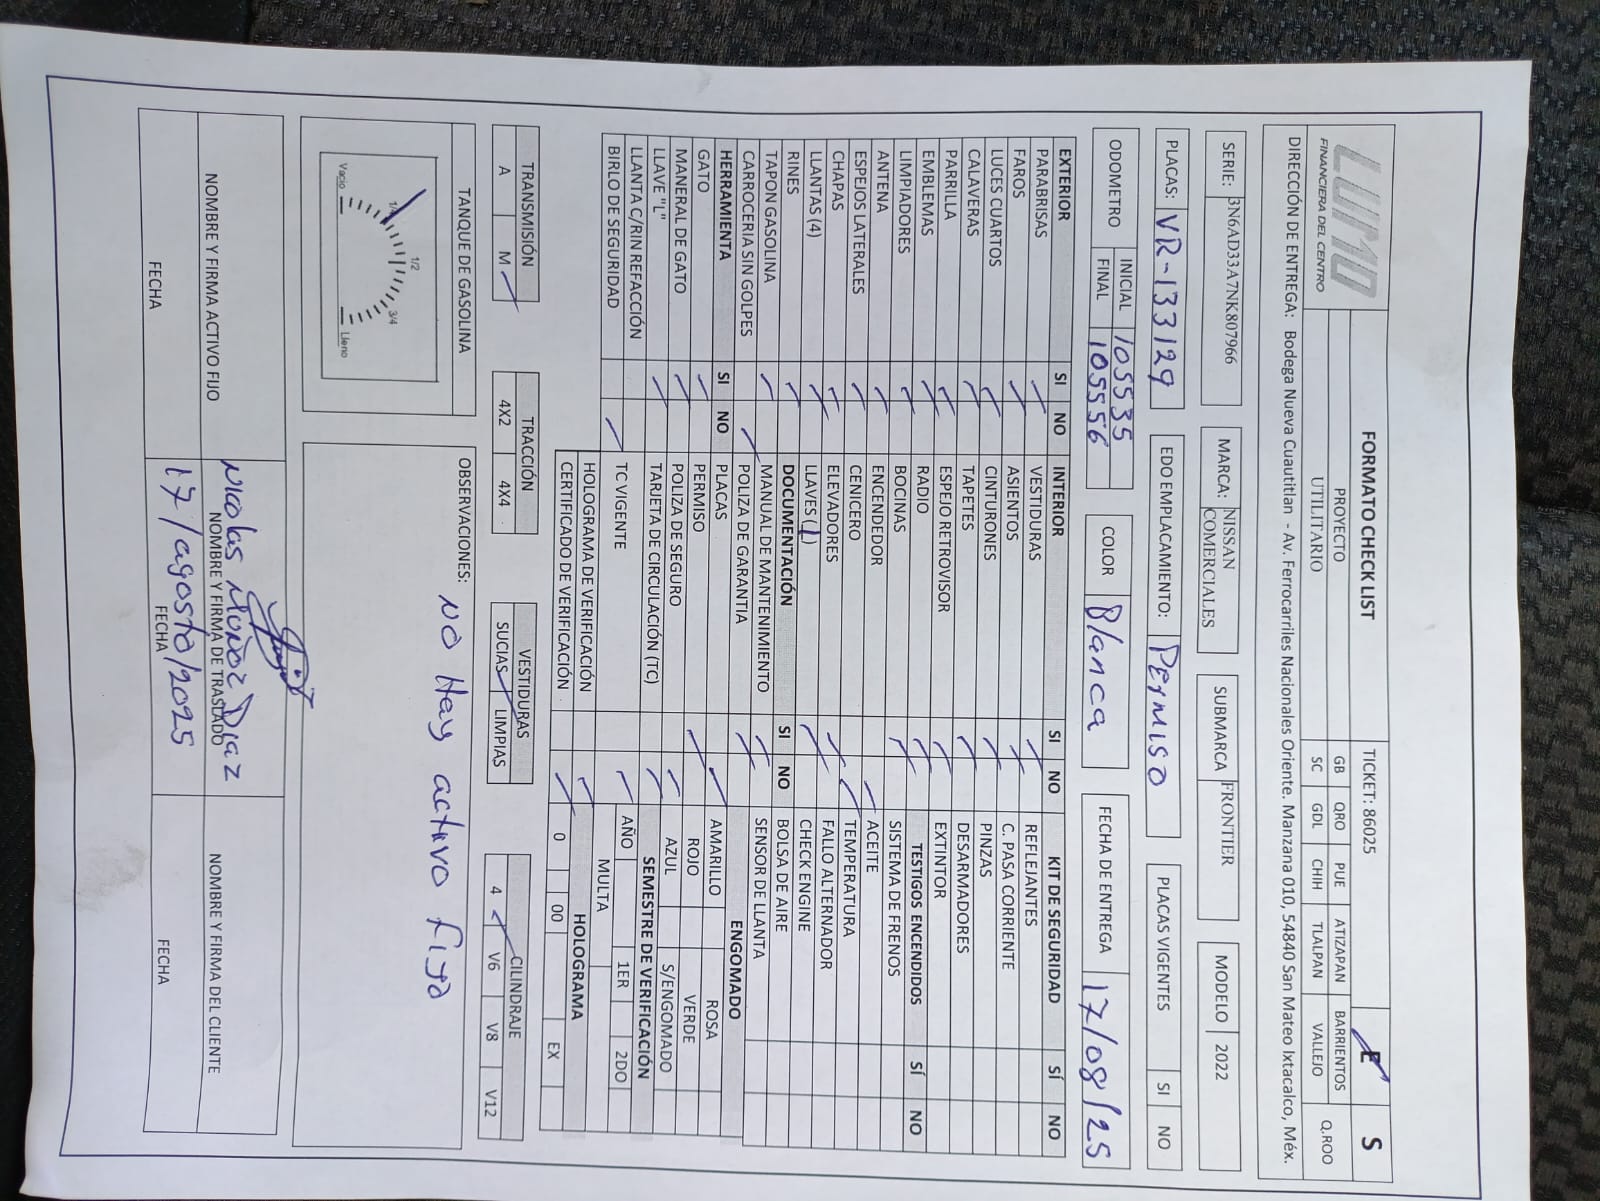 LUMO
FINANCIERA DEL CENTRO
FORMATO CHECK LIST
TICKET: 86025
E
S
PROYECTO
UTILITARIO
GB QRO PUE ATIZAPAN BARRIENTOS Q.ROO
SC GDL CHIH TLALPAN VALLEJO
DIRECCIÓN DE ENTREGA: Bodega Nueva Cuautitlan - Av. Ferrocarriles Nacionales Oriente. Manzana 010, 54840 San Mateo Ixtacalco, Méx.
SERIE: 3N6AD33A7NK807966
MARCA: NISSAN COMERCIALES
SUBMARCA FRONTIER
MODELO 2022
PLACAS: VR-133129
EDO EMPLACAMIENTO: Permiso
PLACAS VIGENTES SI NO
ODOMETRO INICIAL 105535
FINAL 105556
COLOR Blanca
FECHA DE ENTREGA 17/08/25
EXTERIOR SI NO
PARABRISAS
FAROS
LUCES CUARTOS
CALAVERAS
PARRILLA
EMBLEMAS
LIMPIADORES
ANTENA
ESPEJOS LATERALES
CHAPAS
LLANTAS (4)
RINES
TAPON GASOLINA
CARROCERIA SIN GOLPES
HERRAMIENTA SI NO
GATO
MANERAL DE GATO
LLAVE "L"
LLANTA C/RIN REFACCIÓN
BIRLO DE SEGURIDAD
INTERIOR SI NO
VESTIDURAS
ASIENTOS
CINTURONES
TAPETES
ESPEJO RETROVISOR
RADIO
BOCINAS
ENCENDEDOR
CENICERO
ELEVADORES
LLAVES (1)
DOCUMENTACIÓN SI NO
MANUAL DE MANTENIMIENTO
POLIZA DE GARANTIA
PLACAS
PERMISO
POLIZA DE SEGURO
TARJETA DE CIRCULACIÓN (TC)
TC VIGENTE
HOLOGRAMA DE VERIFICACIÓN
CERTIFICADO DE VERIFICACIÓN
KIT DE SEGURIDAD SÍ NO
REFLEJANTES
C. PASA CORRIENTE
PINZAS
DESARMADORES
EXTINTOR
TESTIGOS ENCENDIDOS SÍ NO
SISTEMA DE FRENOS
ACEITE
TEMPERATURA
FALLO ALTERNADOR
CHECK ENGINE
BOLSA DE AIRE
SENSOR DE LLANTA
ENGOMADO
AMARILLO ROSA
ROJO VERDE
AZUL S/ENGOMADO
SEMESTRE DE VERIFICACIÓN
AÑO 1ER 2DO
MULTA
HOLOGRAMA
0 00 EX
TRANSMISIÓN
A M
TRACCIÓN
4X2 4X4
VESTIDURAS
SUCIAS LIMPIAS
CILINDRAJE
4 V6 V8 V12
TANQUE DE GASOLINA
Vacio 1/4 1/2 3/4 Lleno
OBSERVACIONES:
NO Hay activo fijo
NOMBRE Y FIRMA ACTIVO FIJO
FECHA
Nicolas Muñoz Diaz
NOMBRE Y FIRMA DE TRASLADO
17/agosto/2025
FECHA
NOMBRE Y FIRMA DEL CLIENTE
FECHA